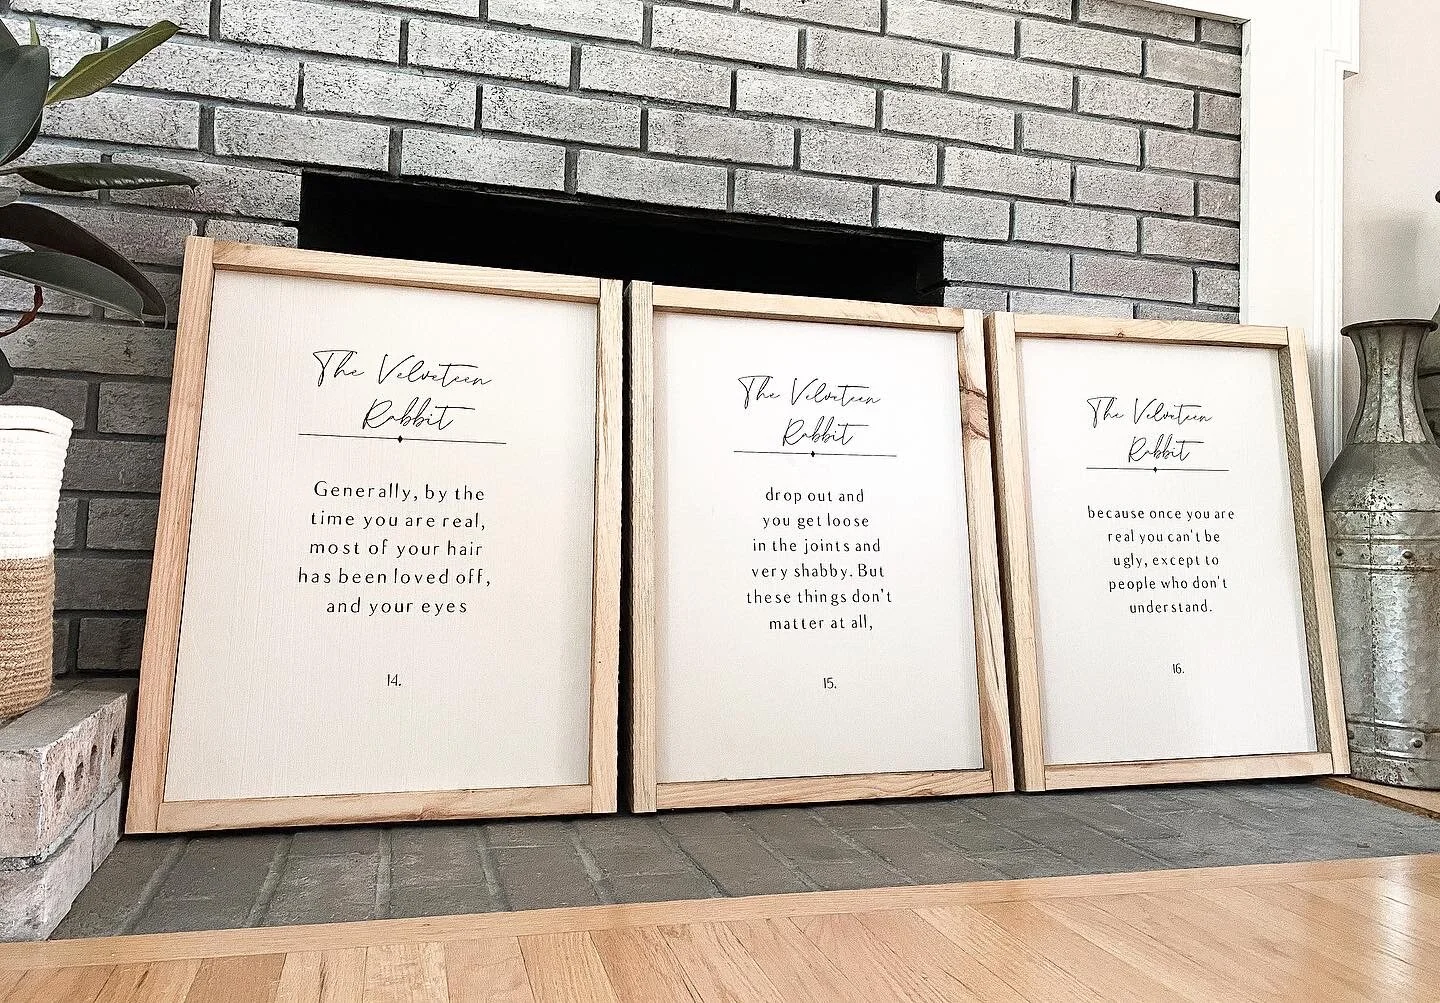 The Velveteen
Rabbit
Generally, by the
time you are real,
most of your hair
has been loved off,
and your eyes
14.
The Velveteen
Rabbit
drop out and
you get loose
in the joints and
very shabby. But
these things don't
matter at all,
15.
The Velveteen
Rabbit
because once you are
real you can't be
ugly, except to
people who don't
understand.
16.